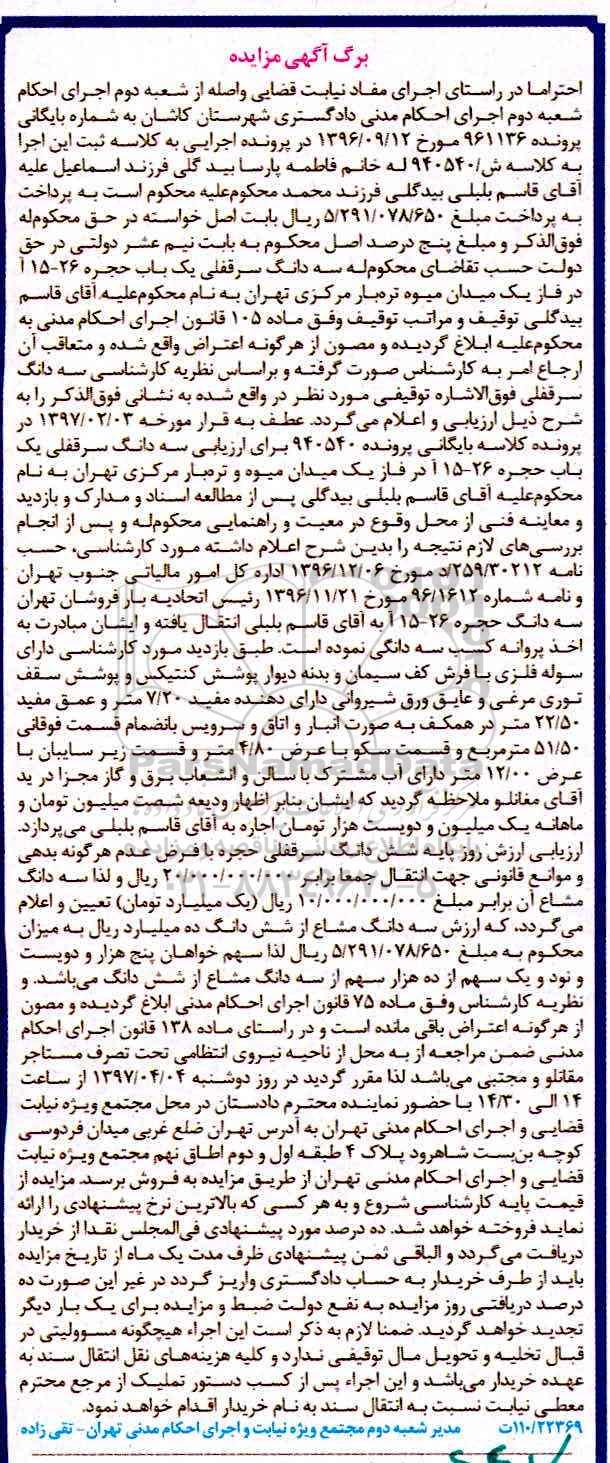 برگ آگهی مزایده
احتراما در راستای اجرای مفاد نیابت قضایی واصله از شعبه دوم اجرای احکام
شعبه دوم اجرای احکام مدنی دادگستری شهرستان کاشان به شماره بایگانی
پرونده ۹۶۱۱۳۶ مورخ ۱۳۹۶/۰۹/۱۲ در پرونده اجرایی به کلاسه ثبت این اجرا
به کلاسه ش/۹۴۰۵۴۰ له خانم فاطمه پارسا بید گلی فرزند اسماعیل علیه
آقای قاسم بلبلی بیدگلی فرزند محمد محکوم‌علیه محکوم است به پرداخت
به پرداخت مبلغ ۵/۲۹۱/۰۷۸/۶۵۰ ریال بابت اصل خواسته در حق محکوم‌له
فوق‌الذکر و مبلغ پنج درصد اصل محکوم به بابت نیم عشر دولتی در حق
دولت حسب تقاضای محکوم‌له سه دانگ سرقفلی یک باب حجره ۲۶-۱۵ آ
در فاز یک میدان میوه تره‌بار مرکزی تهران به نام محکوم‌علیه آقای قاسم
بیدگلی توقیف و مراتب توقیف وفق ماده ۱۰۵ قانون اجرای احکام مدنی به
محکوم‌علیه ابلاغ گردیده و مصون از هرگونه اعتراض واقع شده و متعاقب آن
ارجاع امر به کارشناس صورت گرفته و براساس نظریه کارشناسی سه دانگ
سرقفلی فوق‌الاشاره توقیفی مورد نظر در واقع شده به نشانی فوق‌الذکر را به
شرح ذیل ارزیابی و اعلام می‌گردد. عطف به قرار مورخه ۱۳۹۷/۰۲/۰۳ در
پرونده کلاسه بایگانی پرونده ۹۴۰۵۴۰ برای ارزیابی سه دانگ سرقفلی یک
باب حجره ۲۶-۱۵ آ در فاز یک میدان میوه و تره‌بار مرکزی تهران به نام
محکوم‌علیه آقای قاسم بلبلی بیدگلی پس از مطالعه اسناد و مدارک و بازدید
و معاینه فنی از محل وقوع در معیت و راهنمایی محکوم‌له و پس از انجام
بررسی‌های لازم نتیجه را بدین شرح اعلام داشته مورد کارشناسی، حسب
نامه ۲۵۹/۳۰۲۱۲/د مورخ ۱۳۹۶/۱۲/۰۶ اداره کل امور مالیاتی جنوب تهران
و نامه شماره ۹۶/۱۶۱۲ مورخ ۱۳۹۶/۱۱/۲۱ رئیس اتحادیه بار فروشان تهران
سه دانگ حجره ۲۶-۱۵ آ به آقای قاسم بلبلی انتقال یافته و ایشان مبادرت به
اخذ پروانه کسب سه دانگی نموده است. طبق بازدید مورد کارشناسی دارای
سوله فلزی با فرش کف سیمان و بدنه دیوار پوشش کنتیکس و پوشش سقف
توری مرغی و عایق ورق شیروانی دارای دهنده مفید ۷/۲۰ متر و عمق مفید
۲۲/۵۰ متر در همکف به صورت انبار و اتاق و سرویس بانضمام قسمت فوقانی
۵۱/۵۰ مترمربع و قسمت سکو با عرض ۴/۸۰ متر و قسمت زیر سایبان با
عرض ۱۲/۰۰ متر دارای آب مشترک با سالن و انشعاب برق و گاز مجزا در ید
آقای مغانلو ملاحظه گردید که ایشان بنابر اظهار ودیعه شصت میلیون تومان و
ماهانه یک میلیون و دویست هزار تومان اجاره به آقای قاسم بلبلی می‌پردازد.
ارزیابی ارزش روز پایه شش دانگ سرقفلی حجره با فرض عدم هرگونه بدهی
و موانع قانونی جهت انتقال جمعا برابر ۲۰/۰۰۰/۰۰۰/۰۰۰ ریال و لذا سه دانگ
مشاع آن برابر مبلغ ۱۰/۰۰۰/۰۰۰/۰۰۰ ریال (یک میلیارد تومان) تعیین و اعلام
می‌گردد، که ارزش سه دانگ مشاع از شش دانگ ده میلیارد ریال به میزان
محکوم به مبلغ ۵/۲۹۱/۰۷۸/۶۵۰ ریال لذا سهم خواهان پنج هزار و دویست
و نود و یک سهم از ده هزار سهم از سه دانگ مشاع از شش دانگ می‌باشد. و
نظریه کارشناس وفق ماده ۷۵ قانون اجرای احکام مدنی ابلاغ گردیده و مصون
از هرگونه اعتراض باقی مانده است و در راستای ماده ۱۳۸ قانون اجرای احکام
مدنی ضمن مراجعه از به محل از ناحیه نیروی انتظامی تحت تصرف مستاجر
مقانلو و مجتبی می‌باشد لذا مقرر گردید در روز دوشنبه ۱۳۹۷/۰۴/۰۴ از ساعت
۱۴ الی ۱۴/۳۰ با حضور نماینده محترم دادستان در محل مجتمع ویژه نیابت
قضایی و اجرای احکام مدنی تهران به آدرس تهران ضلع غربی میدان فردوسی
کوچه بن‌بست شاهرود پلاک ۴ طبقه اول و دوم اطاق نهم مجتمع ویژه نیابت
قضایی و اجرای احکام مدنی تهران از طریق مزایده به فروش برسد. مزایده از
قیمت پایه کارشناسی شروع و به هر کسی که بالاترین نرخ پیشنهادی را ارائه
نماید فروخته خواهد شد. ده درصد مورد پیشنهادی فی‌المجلس نقدا از خریدار
دریافت می‌گردد و الباقی ثمن پیشنهادی ظرف مدت یک ماه از تاریخ مزایده
باید از طرف خریدار به حساب دادگستری واریز گردد در غیر این صورت ده
درصد دریافتی روز مزایده به نفع دولت ضبط و مزایده برای یک بار دیگر
تجدید خواهد گردید. ضمنا لازم به ذکر است این اجراء هیچگونه مسوولیتی در
قبال تخلیه و تحویل مال توقیفی ندارد و کلیه هزینه‌های نقل انتقال سند به
عهده خریدار می‌باشد و این اجراء پس از کسب دستور تملیک از مرجع محترم
معطی نیابت نسبت به انتقال سند به نام خریدار اقدام خواهد نمود.
۱۱۰/۲۲۳۶۹ت مدیر شعبه دوم مجتمع ویژه نیابت و اجرای احکام مدنی تهران - تقی زاده
ParsNamadData
۰۲۱-۸۸۳۴۹۶۷۰-۵